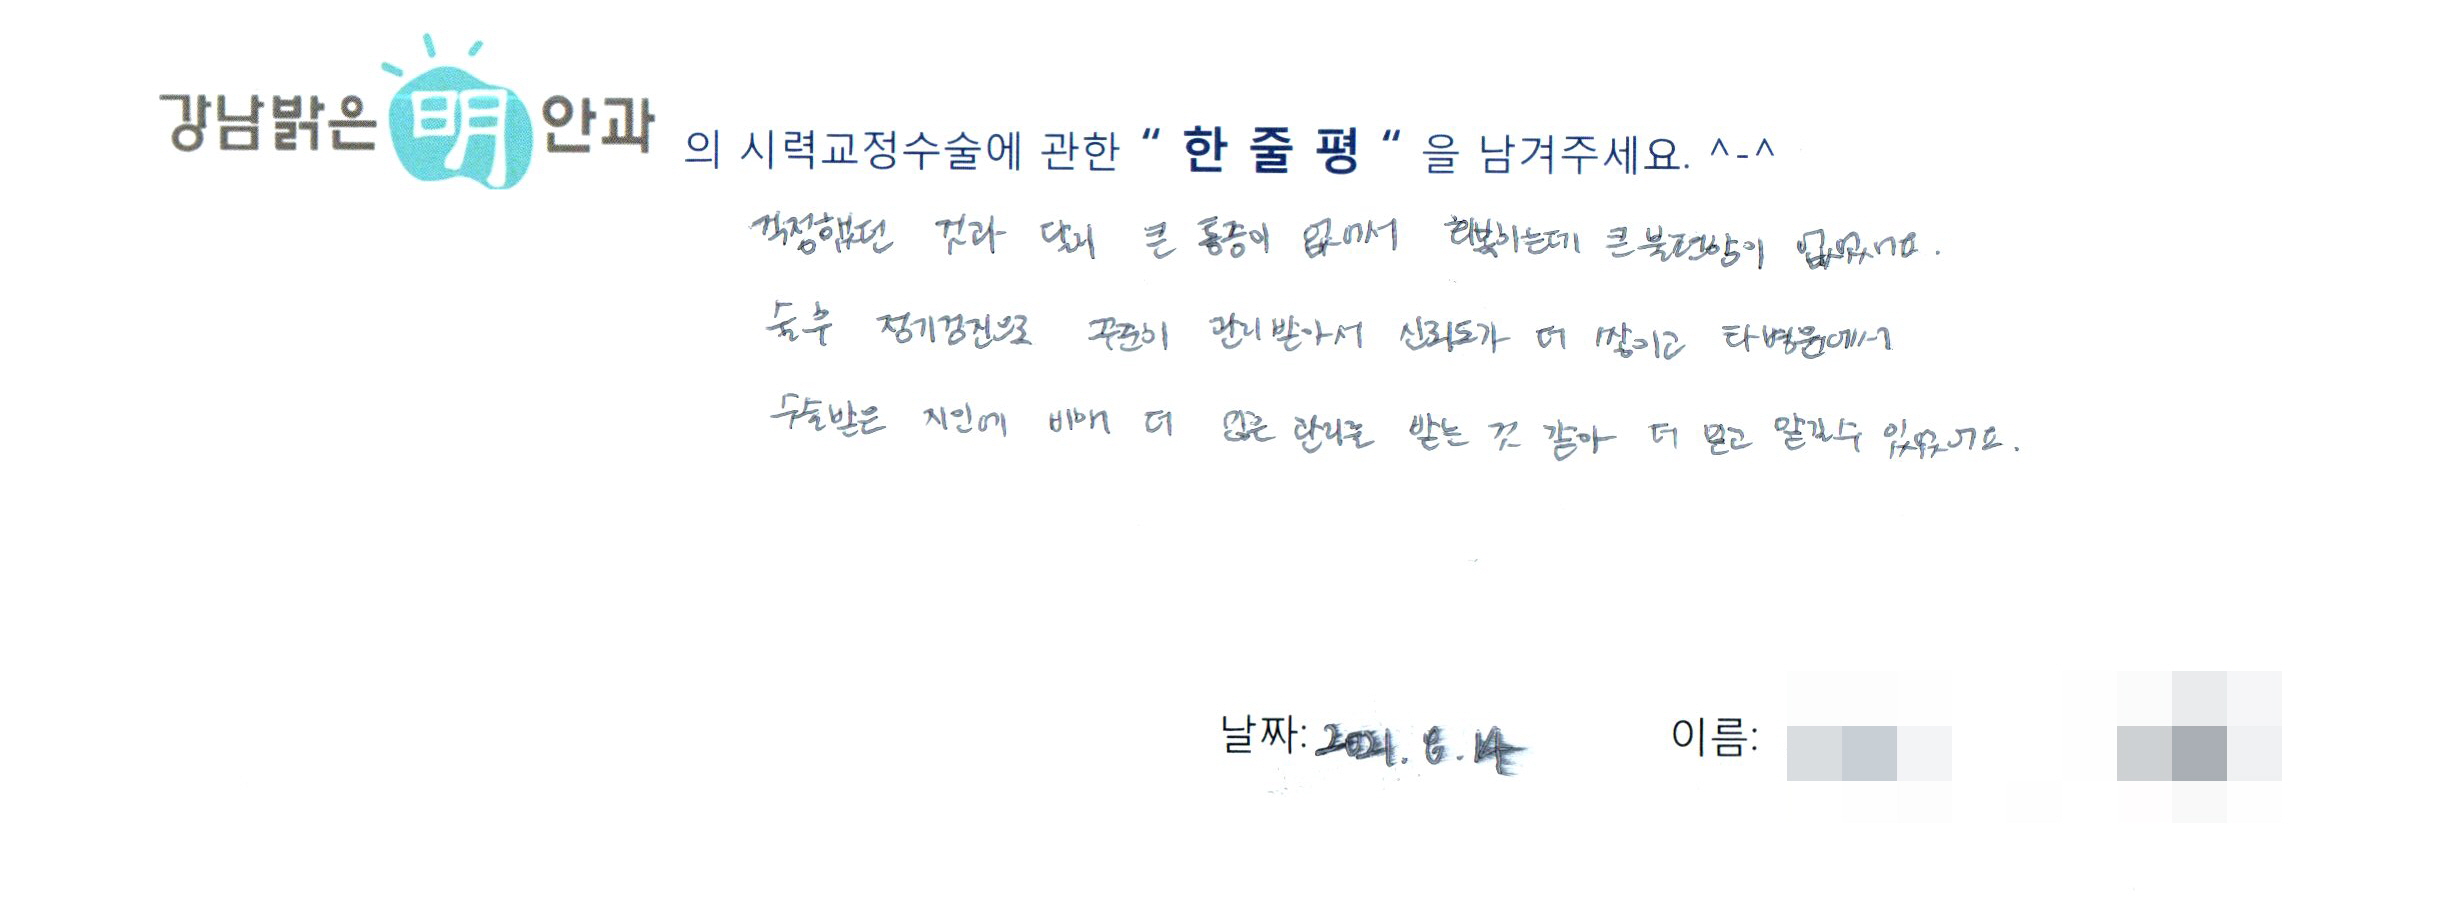 강남밝은 明 안과 의 시력교정수술에 관한 “ 한 줄 평 “ 을 남겨주세요. ^-^
걱정했던 것과 달리 큰 통증이 없어서 회복하는데 큰 불편함이 없었어요.
수술 후 정기검진으로 꾸준히 관리받아서 신뢰도가 더 쌓이고 타병원에서
수술받은 지인에 비해 더 관리를 받는 것 같아 더 믿고 맡길수 있었어요.
날짜: 2021. 6. 14 이름: